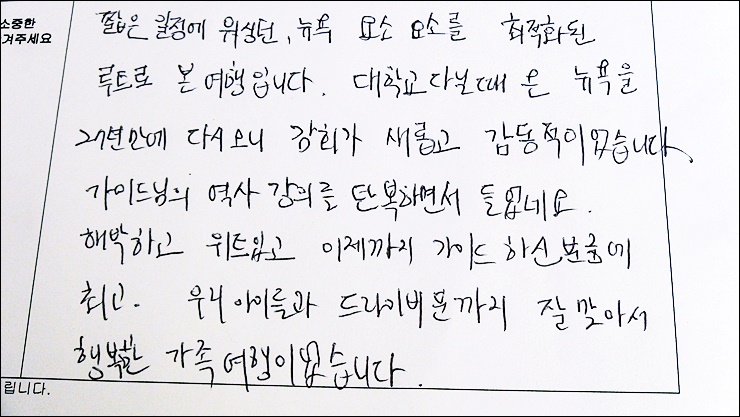 소중한
겨주세요
짧은 일정에 위싱턴, 뉴욕 요소 요소를 최적화된
루트로 본 여행입니다. 대학교 다닐때 온 뉴욕을
27년만에 다시오니 감회가 새롭고 감동적이었습니다.
가이드님의 역사 강의를 탄복하면서 들었네요.
해박하고 위트있고 이제까지 가이드 하신 분중에
최고. 우리 아이들과 드라이버 분까지 잘 맞아서
행복한 가족여행이었습니다.
립니다.